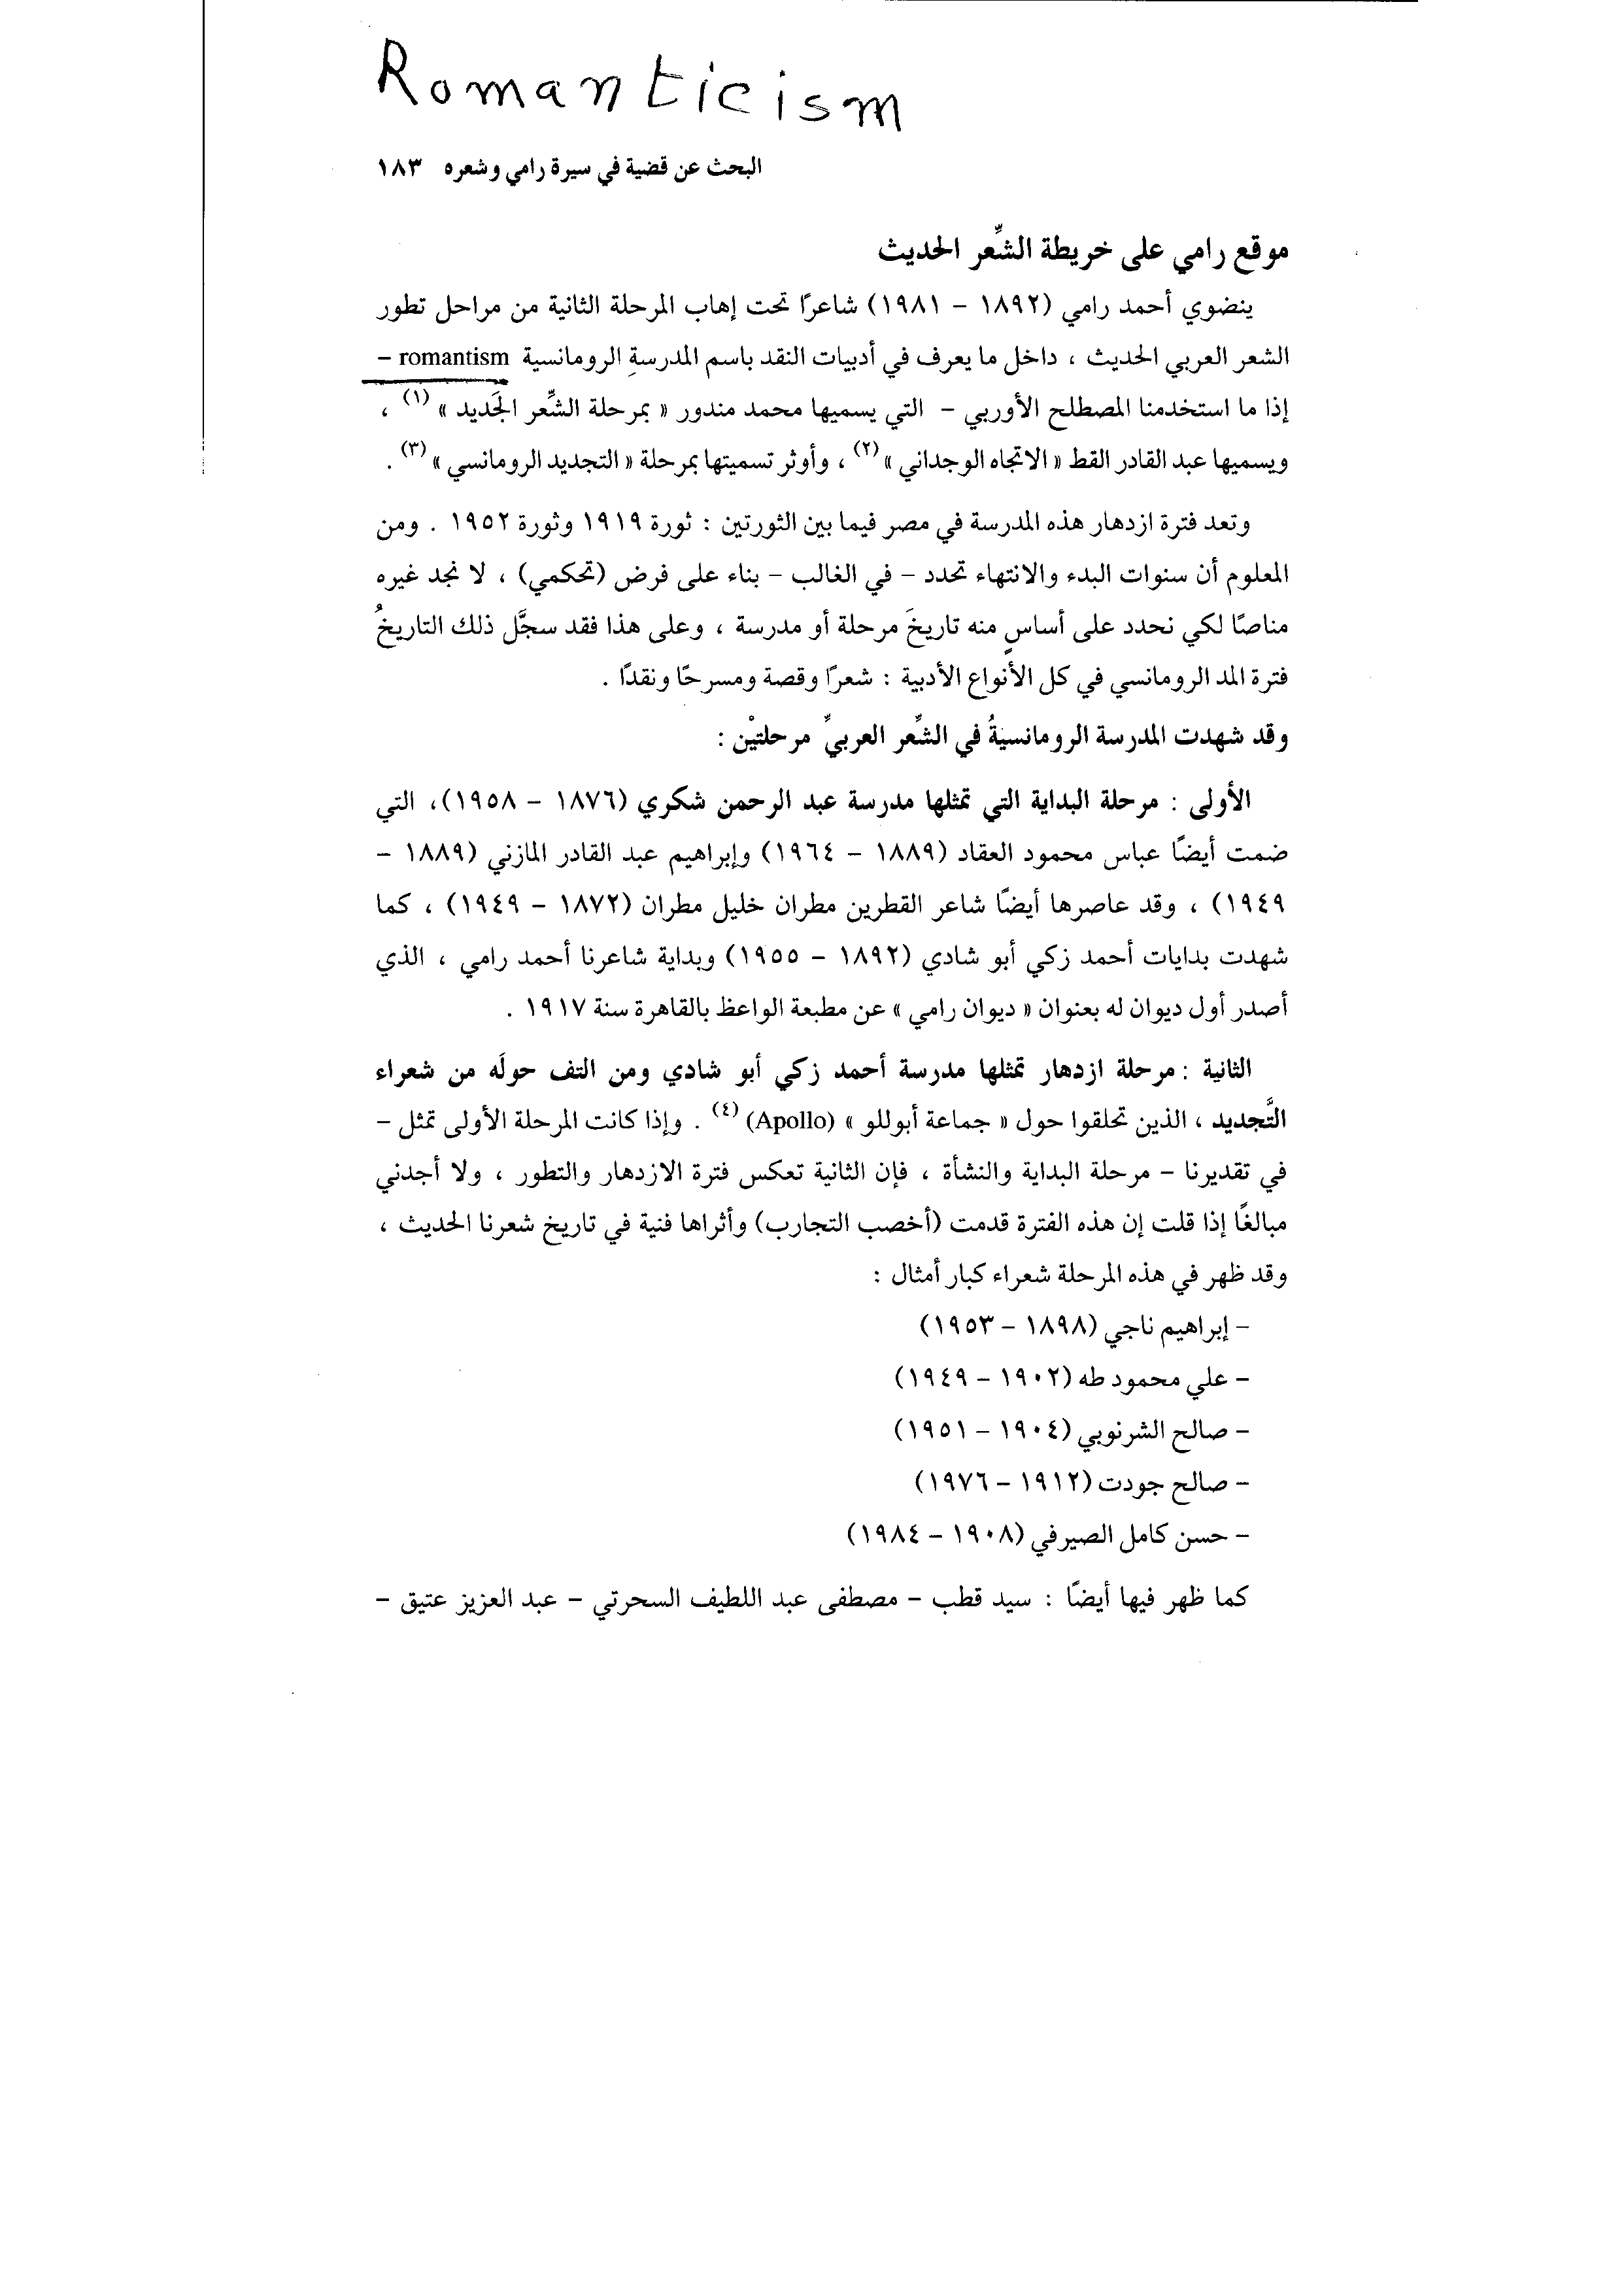 Romanticism
البحث عن قضية في سيرة رامي وشعره ١٨٣
موقع رامي على خريطة الشِّعر الحديث
ينضوي أحمد رامي (١٨٩٢ – ١٩٨١) شاعرًا تحت إهاب المرحلة الثانية من مراحل تطور
الشعر العربي الحديث ، داخل ما يعرف في أدبيات النقد باسم المدرسةِ الرومانسية romantism –
إذا ما استخدمنا المصطلح الأوربي – التي يسميها محمد مندور « بمرحلة الشِّعر الجَديد » (١) ،
ويسميها عبد القادر القط « الاتجاه الوجداني » (٢) ، وأوثر تسميتها بمرحلة « التجديد الرومانسي » (٣) .
وتعد فترة ازدهار هذه المدرسة في مصر فيما بين الثورتين : ثورة ١٩١٩ وثورة ١٩٥٢ . ومن
المعلوم أن سنوات البدء والانتهاء تحدد – في الغالب – بناء على فرض (تحكمي) ، لا نجد غيره
مناصًا لكي نحدد على أساسٍ منه تاريخَ مرحلة أو مدرسة ، وعلى هذا فقد سجَّل ذلك التاريخُ
فترة المد الرومانسي في كل الأنواع الأدبية : شعرًا وقصة ومسرحًا ونقدًا .
وقد شهدت المدرسة الرومانسيةُ في الشِّعر العربيِّ مرحلتيْن :
الأولى : مرحلة البداية التي تمثلها مدرسة عبد الرحمن شكري (١٨٧٦ – ١٩٥٨)، التي
ضمت أيضًا عباس محمود العقاد (١٨٨٩ – ١٩٦٤) وإبراهيم عبد القادر المازني (١٨٨٩ –
١٩٤٩) ، وقد عاصرها أيضًا شاعر القطرين مطران خليل مطران (١٨٧٢ – ١٩٤٩) ، كما
شهدت بدايات أحمد زكي أبو شادي (١٨٩٢ – ١٩٥٥) وبداية شاعرنا أحمد رامي ، الذي
أصدر أول ديوان له بعنوان « ديوان رامي » عن مطبعة الواعظ بالقاهرة سنة ١٩١٧ .
الثانية : مرحلة ازدهار تمثلها مدرسة أحمد زكي أبو شادي ومن التف حولَه من شعراء
التَّجديد ، الذين تحلقوا حول « جماعة أبوللو » (Apollo) (٤) . وإذا كانت المرحلة الأولى تمثل –
في تقديرنا – مرحلة البداية والنشأة ، فإن الثانية تعكس فترة الازدهار والتطور ، ولا أجدني
مبالغًا إذا قلت إن هذه الفترة قدمت (أخصب التجارب) وأثراها فنية في تاريخ شعرنا الحديث ،
وقد ظهر في هذه المرحلة شعراء كبار أمثال :
– إبراهيم ناجي (١٨٩٨ – ١٩٥٣)
– علي محمود طه (١٩٠٢ – ١٩٤٩)
– صالح الشرنوبي (١٩٠٤ – ١٩٥١)
– صالح جودت (١٩١٢ – ١٩٧٦)
– حسن كامل الصيرفي (١٩٠٨ – ١٩٨٤)
كما ظهر فيها أيضًا : سيد قطب – مصطفى عبد اللطيف السحرتي – عبد العزيز عتيق –